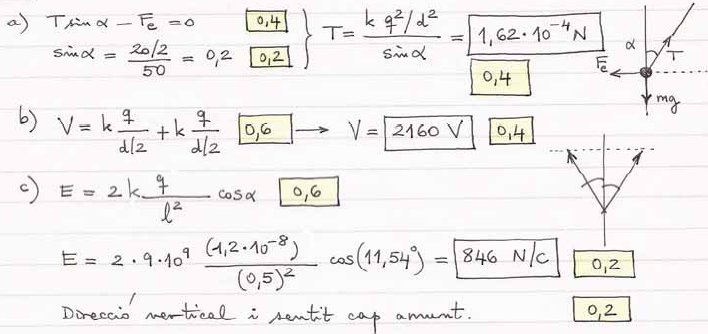 a) T sin α − Fe = 0 0,4 } T = k q²/d² / sin α = 1,62·10⁻⁴ N
sin α = 20/2 / 50 = 0,2 0,2 0,4
α T Fe mg
b) V = k q/d/2 + k q/d/2 0,6 → V = 2160 V 0,4
c) E = 2 k q/l² cos α 0,6
E = 2 · 9·10⁹ (1,2·10⁻⁸)/(0,5)² cos(11,54°) = 846 N/C 0,2
Direcció vertical i sentit cap amunt. 0,2